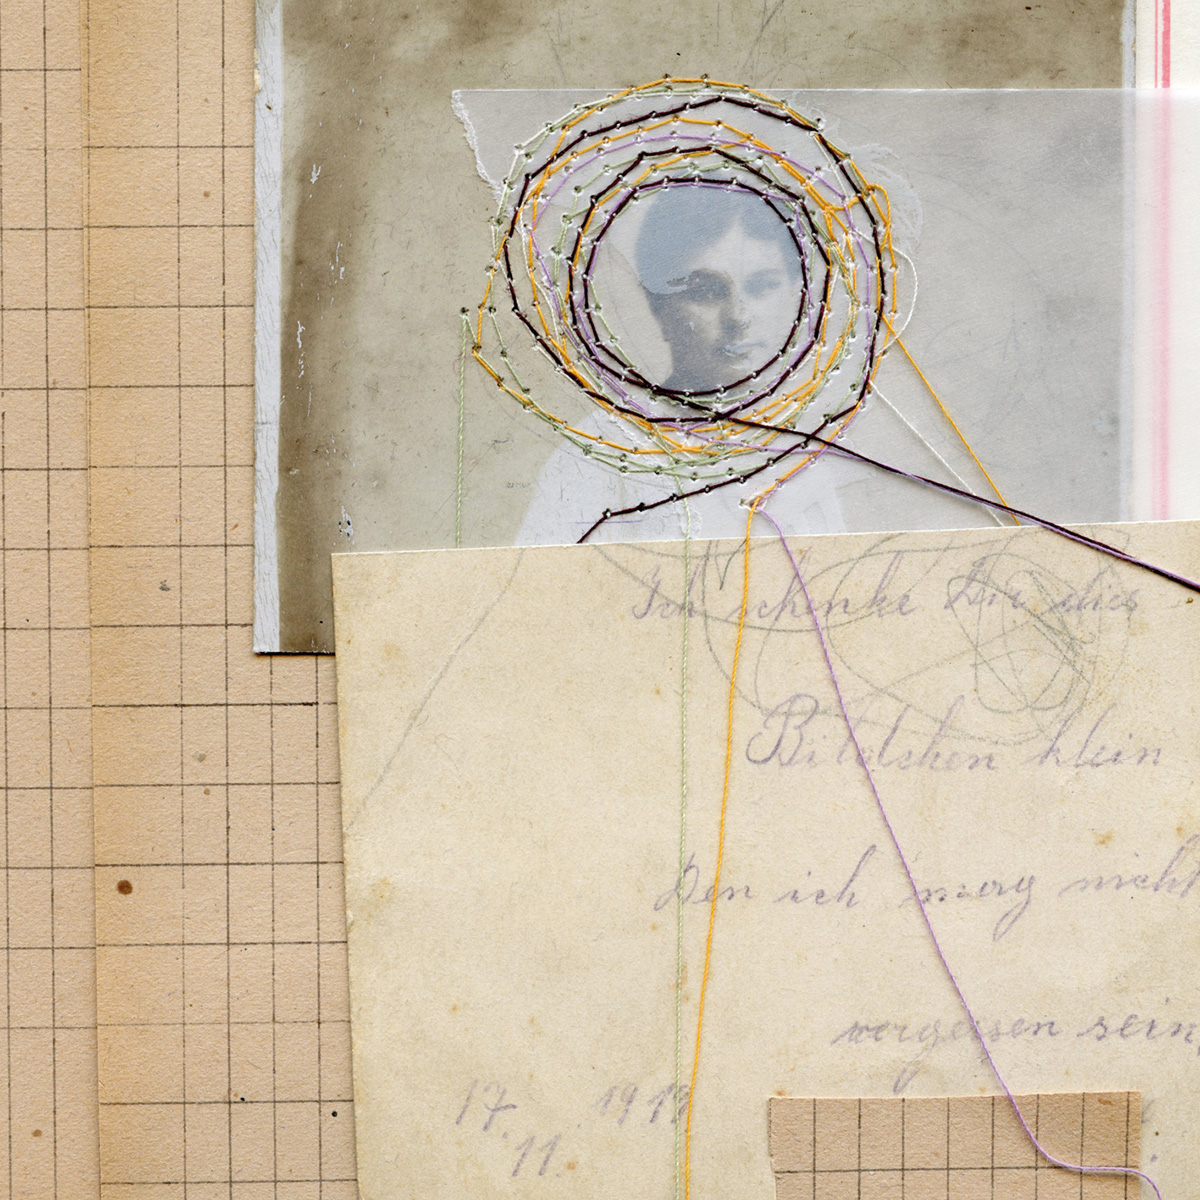 Ich schenke Dir dies
Bildchen klein
Den ich mag nicht
vergessen sein,
17. 1919
11.